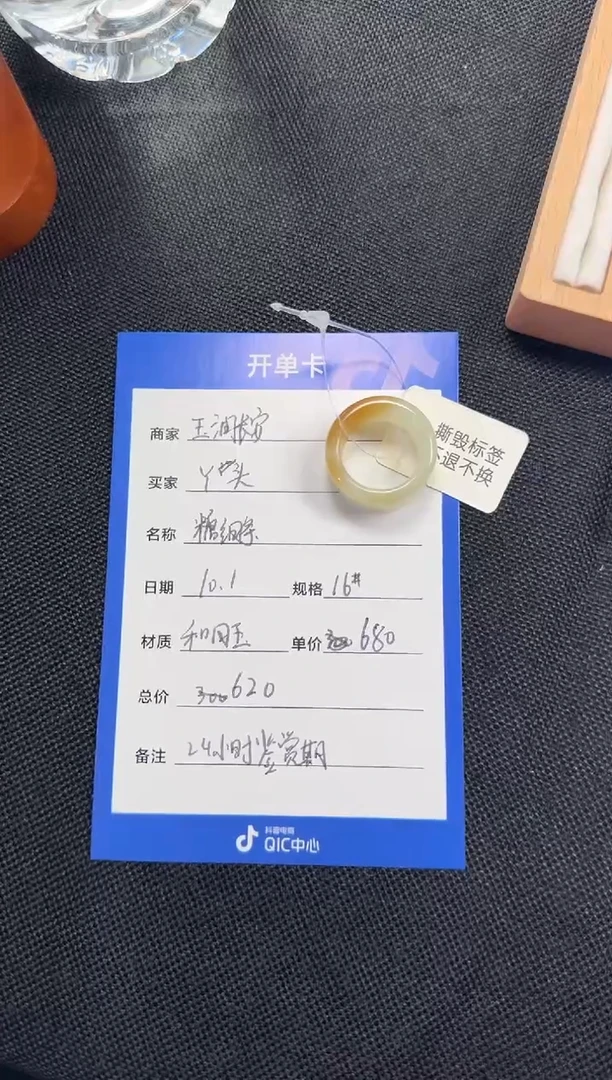 开单卡
商家 玉润长安
买家 丫丫头
名称
日期 10.1 规格 16#
材质 和田玉 单价 680
总价 620
备注 24小时鉴赏期
撕毁标签
不退不换
抖音电商
QIC中心